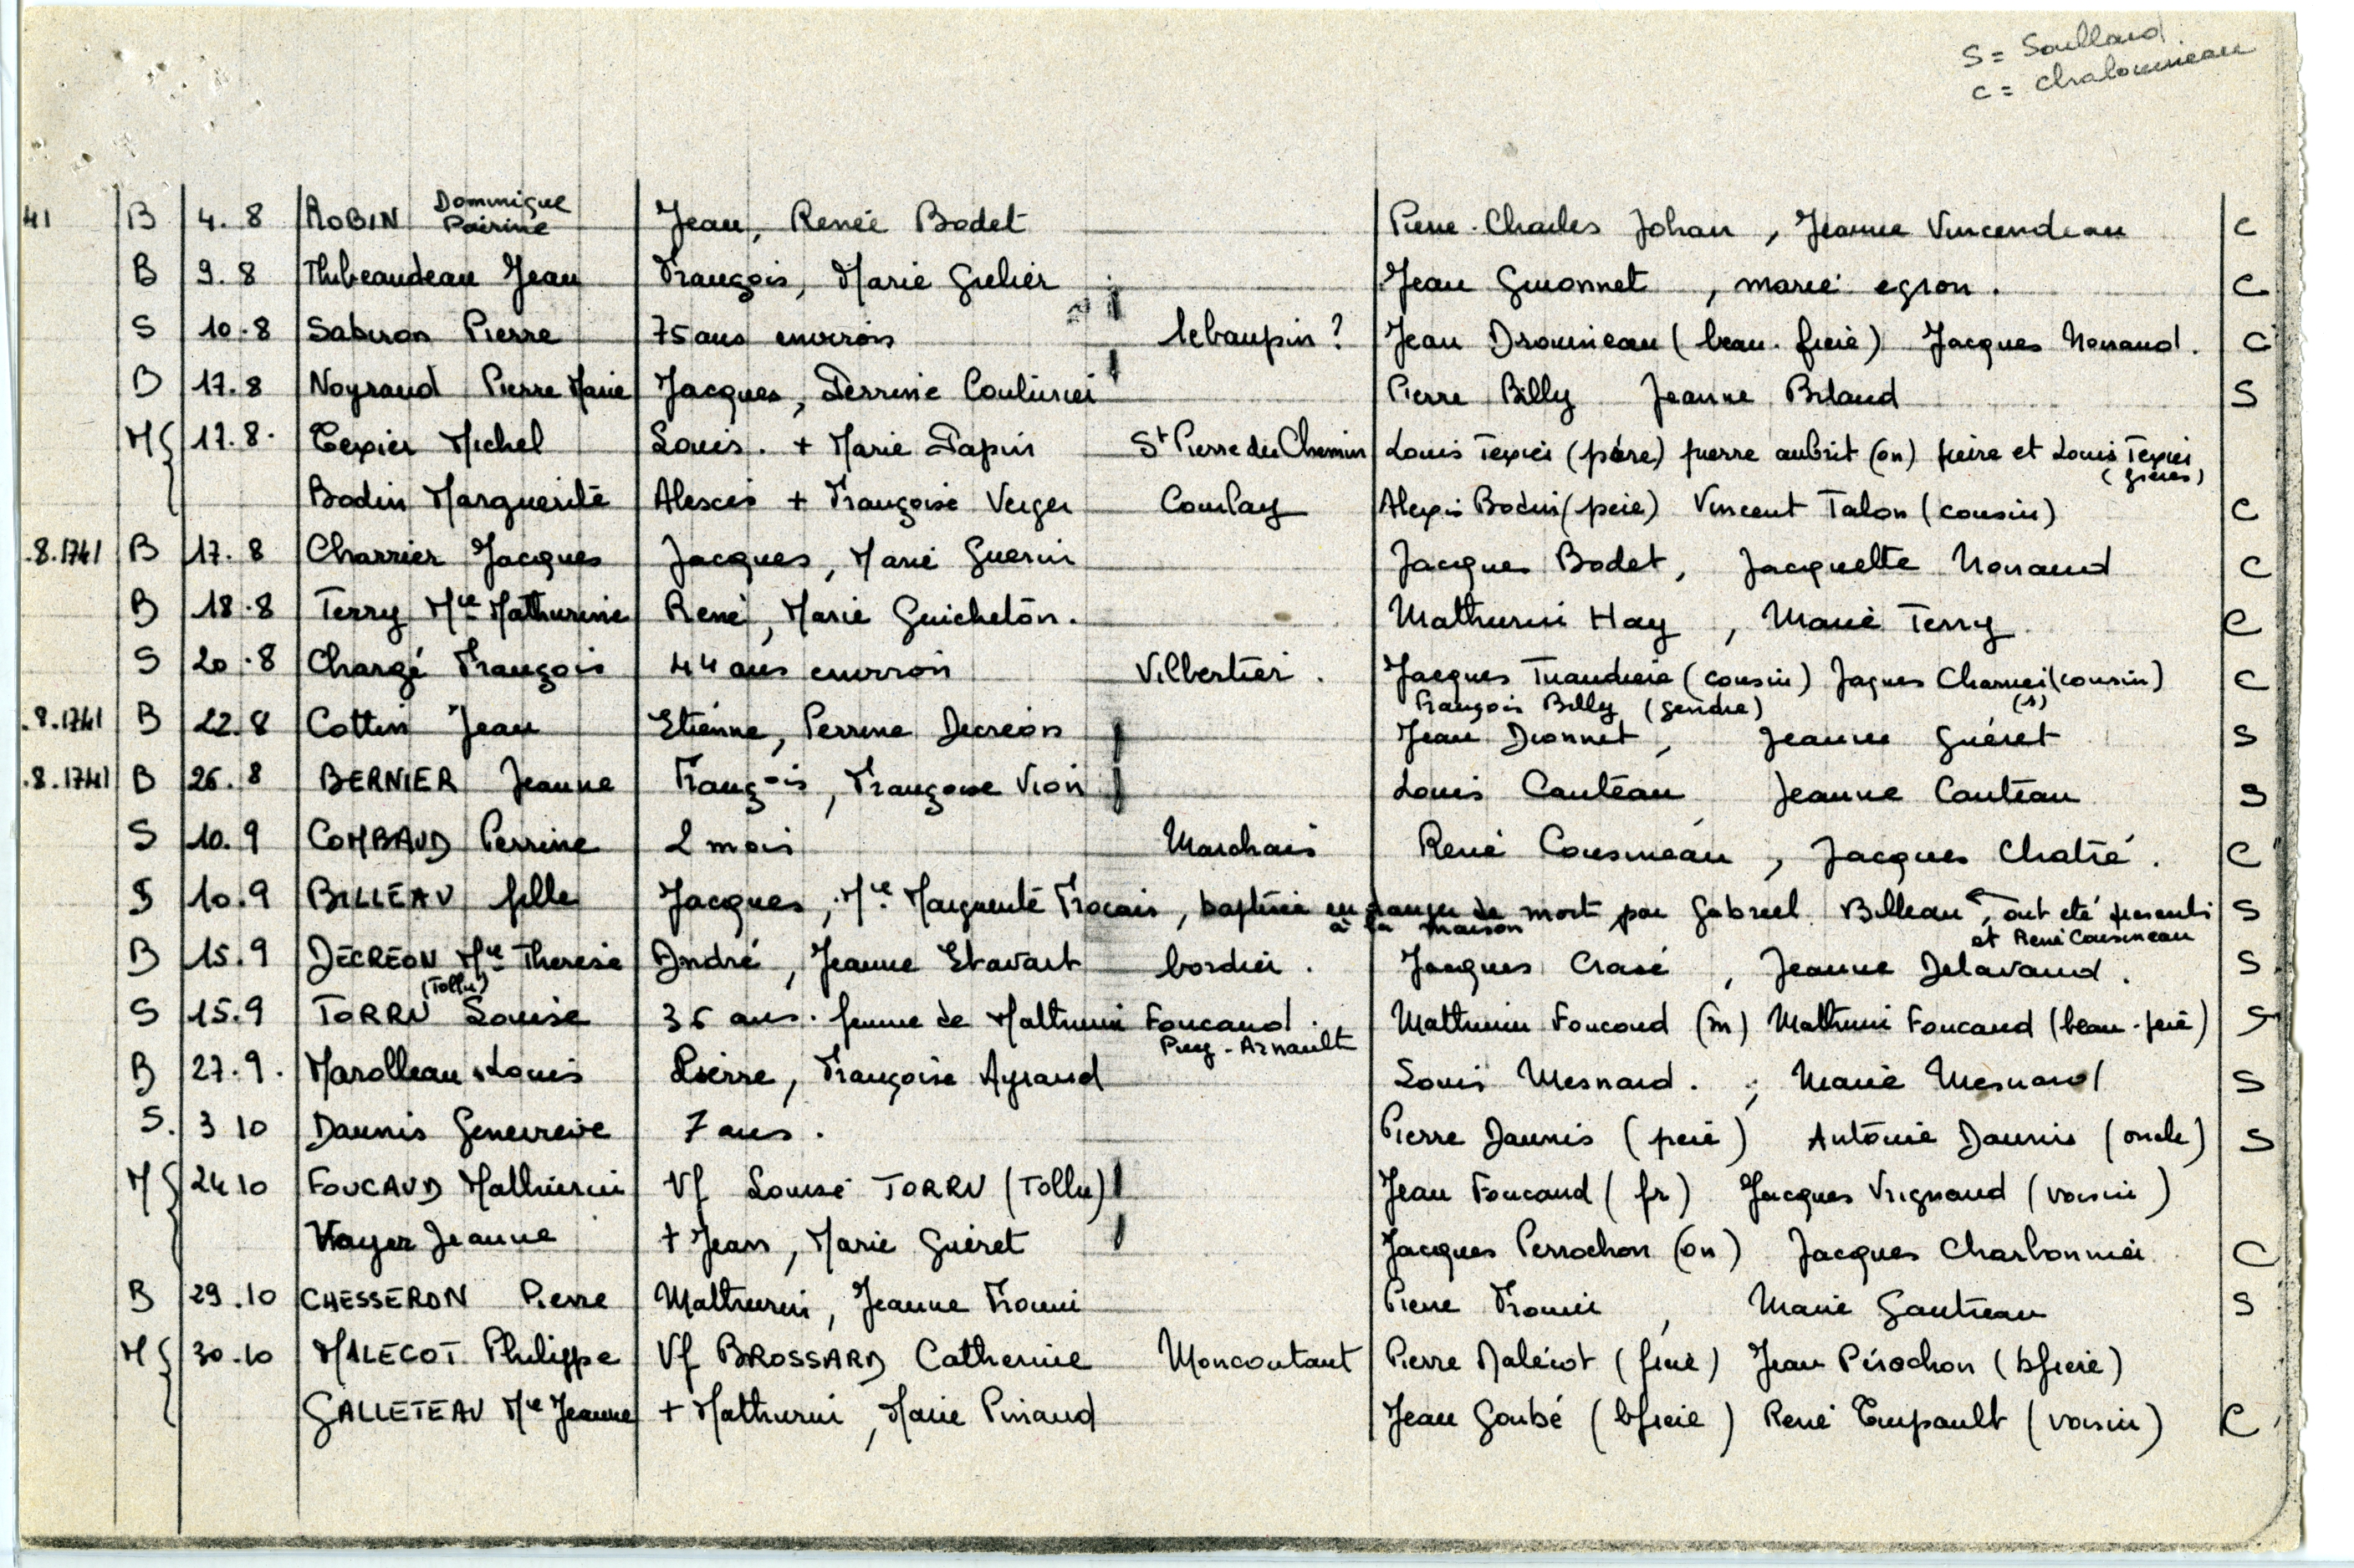 S = Soullard
C = Chalonneau
41 B 4. 8 ROBIN Dominique Perrine Jean, Renée Bodet Pierre-Charles Johan, Jeanne Vincendeau C
B 9. 8 Thibeaudeau Jean François, Marie Grelier Jean Guionnet, marie egron. C
S 10.8 Sabiron Pierre 75 ans environ lebaupin? Jean Drouineau (beau-frere) Jacques Nonaud. C
B 17.8 Noyraud Pierre Marie Jacques, Perrine Couturier Pierre Billy Jeanne Bilaud S
M 17.8. Texier Michel Louis. + Marie Papin St Pierre du Chemin Louis Texier (père) pierre aubrit (on) pierre et Louis Texier (frères)
Bodin Marguerite Alexis + Françoise Verger Courlay Alexis Bodin (pere) Vincent Talon (cousin) C
.8.1741 B 17. 8 Charrier Jacques Jacques, Marie Guerin Jacques Bodet, Jacquette Nonaud C
B 18.8 Terry Mie Mathurine René, Marie Guicheton. Mathurin Hay, Marie Terry C
S 20.8 Chargé François 44 ans environ Vilbertier. Jacques (cousin) Jaques Charrier (cousin) C
François Billy (gendre) (s)
.8.1741 B 22.8 Cottin Jean Etienne, Perrine Decreon Jean Dionnet, Jeanne Guéret S
.8.1741 B 26.8 BERNIER Jeanne François, Françoise Vion Louis Cauteau, Jeanne Cauteau S
S 10.9 COMBAUD Perrine 2 mois Marchais René Cousineau, Jacques Chatré. C
S 10.9 BILLEAU fille Jacques, Mie Marguerite Frocais, baptisée en danger de mort par Gabriel Billeau, ont eté presents S
à la maison et René Cousineau
B 15.9 DECREON Mie Therese André, Jeanne Etavart bordier. Jacques Crasé, Jeanne Delavaud. S
(Tollu)
S 15.9 TORRU Louise 36 ans. femme de Mathurin Foucaud. Mathurin Foucaud (m) Mathurin Foucaud (beau-père) S
Puy-Arnault
B 27.9. Marolleau Louis Pierre, Françoise Ayraud Louis Mesnard.; Marie Mesnard S
S. 3 10 Daunis Genevieve 7 ans. Pierre Daunis (pere) Antoine Daunis (oncle) S
M 24 10 FOUCAUD Mathurin Vf Louise TORRU (Tollu) Jean Foucaud (fr) Jacques Vrignaud (voisin)
Voyer Jeanne + Jean, Marie Guéret Jacques Perrochon (on) Jacques Charbonnier C
B 29.10 CHESSERON Pierre Mathurin, Jeanne Frouin Pierre Frouin, Marie Gautreau S
M 30.10 MALECOT Philippe Vf BROSSARD Catherine Moncoutant Pierre Malécot (frere) Jean Pérochon (bfrere)
GALLETEAU Mie Jeanne + Mathurin, Marie Pinaud Jean Goubé (bfrere) René Empault (voisin) C